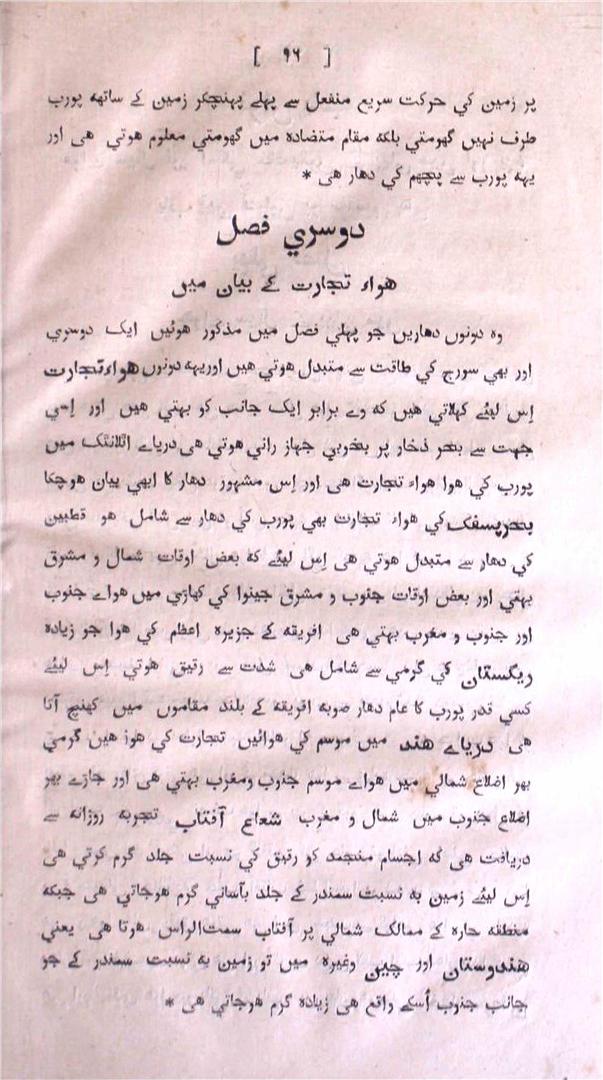 [ ۹۶ ]
پر زمین کي حرکت سریع منفعل سے پہلے پہنچکر زمین کے ساتهه پورب
طرف نہیں گهومتي بلکه مقام متضاده میں گهومتي معلوم هوتي هی اور
یهه پورب سے پچهم کي دهار هی *
دوسري فصل
هواء تجارت کے بیان میں
وه دونوں دهاریں جو پہلي فصل میں مذکور هوئیں ایک دوسري
اور بهي سورج کي طاقت سے متبدل هوتي هیں اوریهه دونوں هواء تجارت
اِس لیئے کہلاتي هیں که وے برابر ایک جانب کو بہتي هیں اور اِسي
جہت سے بحر ذخار پر بخوبي جہاز راني هوتي هی دریاے اٹلانٹک میں
پورب کي هوا هواء تجارت هی اور اِس مشہور دهار کا ابهي بیان هوچکا
بحرپسفک کي هواء تجارت بهي پورب کي دهار سے شامل هو قطبین
کي دهار سے متبدل هوتي هی اِس لیئے که بعض اوقات شمال و مشرق
بہتي اور بعض اوقات جنوب و مشرق جینوا کي کهاڑي میں هواے جنوب
اور جنوب و مغرب بہتي هی افریقه کے جزیره اعظم کي هوا جو زیاده
ریگستان کي گرمي سے شامل هی شدت سے رقیق هوتي اِس لیئے
کسي قدر پورب کا عام دهار صوبه افریقه کے بلند مقاموں میں کهنچ آتا
هی دریاے هند میں موسم کي هوائیں تجارت کي هوز هیں گرمي
بهر اضلاع شمالي میں هواے موسم جنوب ومغرب بہتي هی اور جاڑے بهر
اضلاع جنوب میں شمال و مغرب شعاع آفتاب تجربه روزانه سے
دریافت هی که اجسام منجمد کو رقیق کي نسبت جلد گرم کرتي هی
اِس لیئے زمین به نسبت سمندر کے جلد بآساني گرم هوجاتي هی جبکه
منطقه حاره کے ممالک شمالي پر آفتاب سمت‌الراس هوتا هی یعني
هندوستان اور چین وغیره میں تو زمین به نسبت سمندر کے جو
جانب جنوب اُسکے واقع هی زیاده گرم هوجاتي هی *